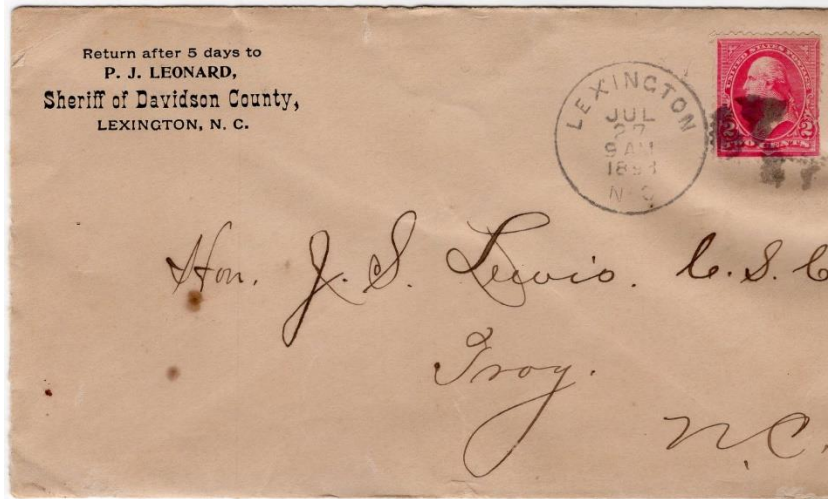 Return after 5 days to
P. J. LEONARD,
Sheriff of Davidson County,
LEXINGTON, N. C.
LEXINGTON
JUL
27
9 AM
N. C
UNITED STATES POSTAGE
2 2
TWO CENTS
Hon. J. S. Lewis. C. S. C
Troy.
N. C.